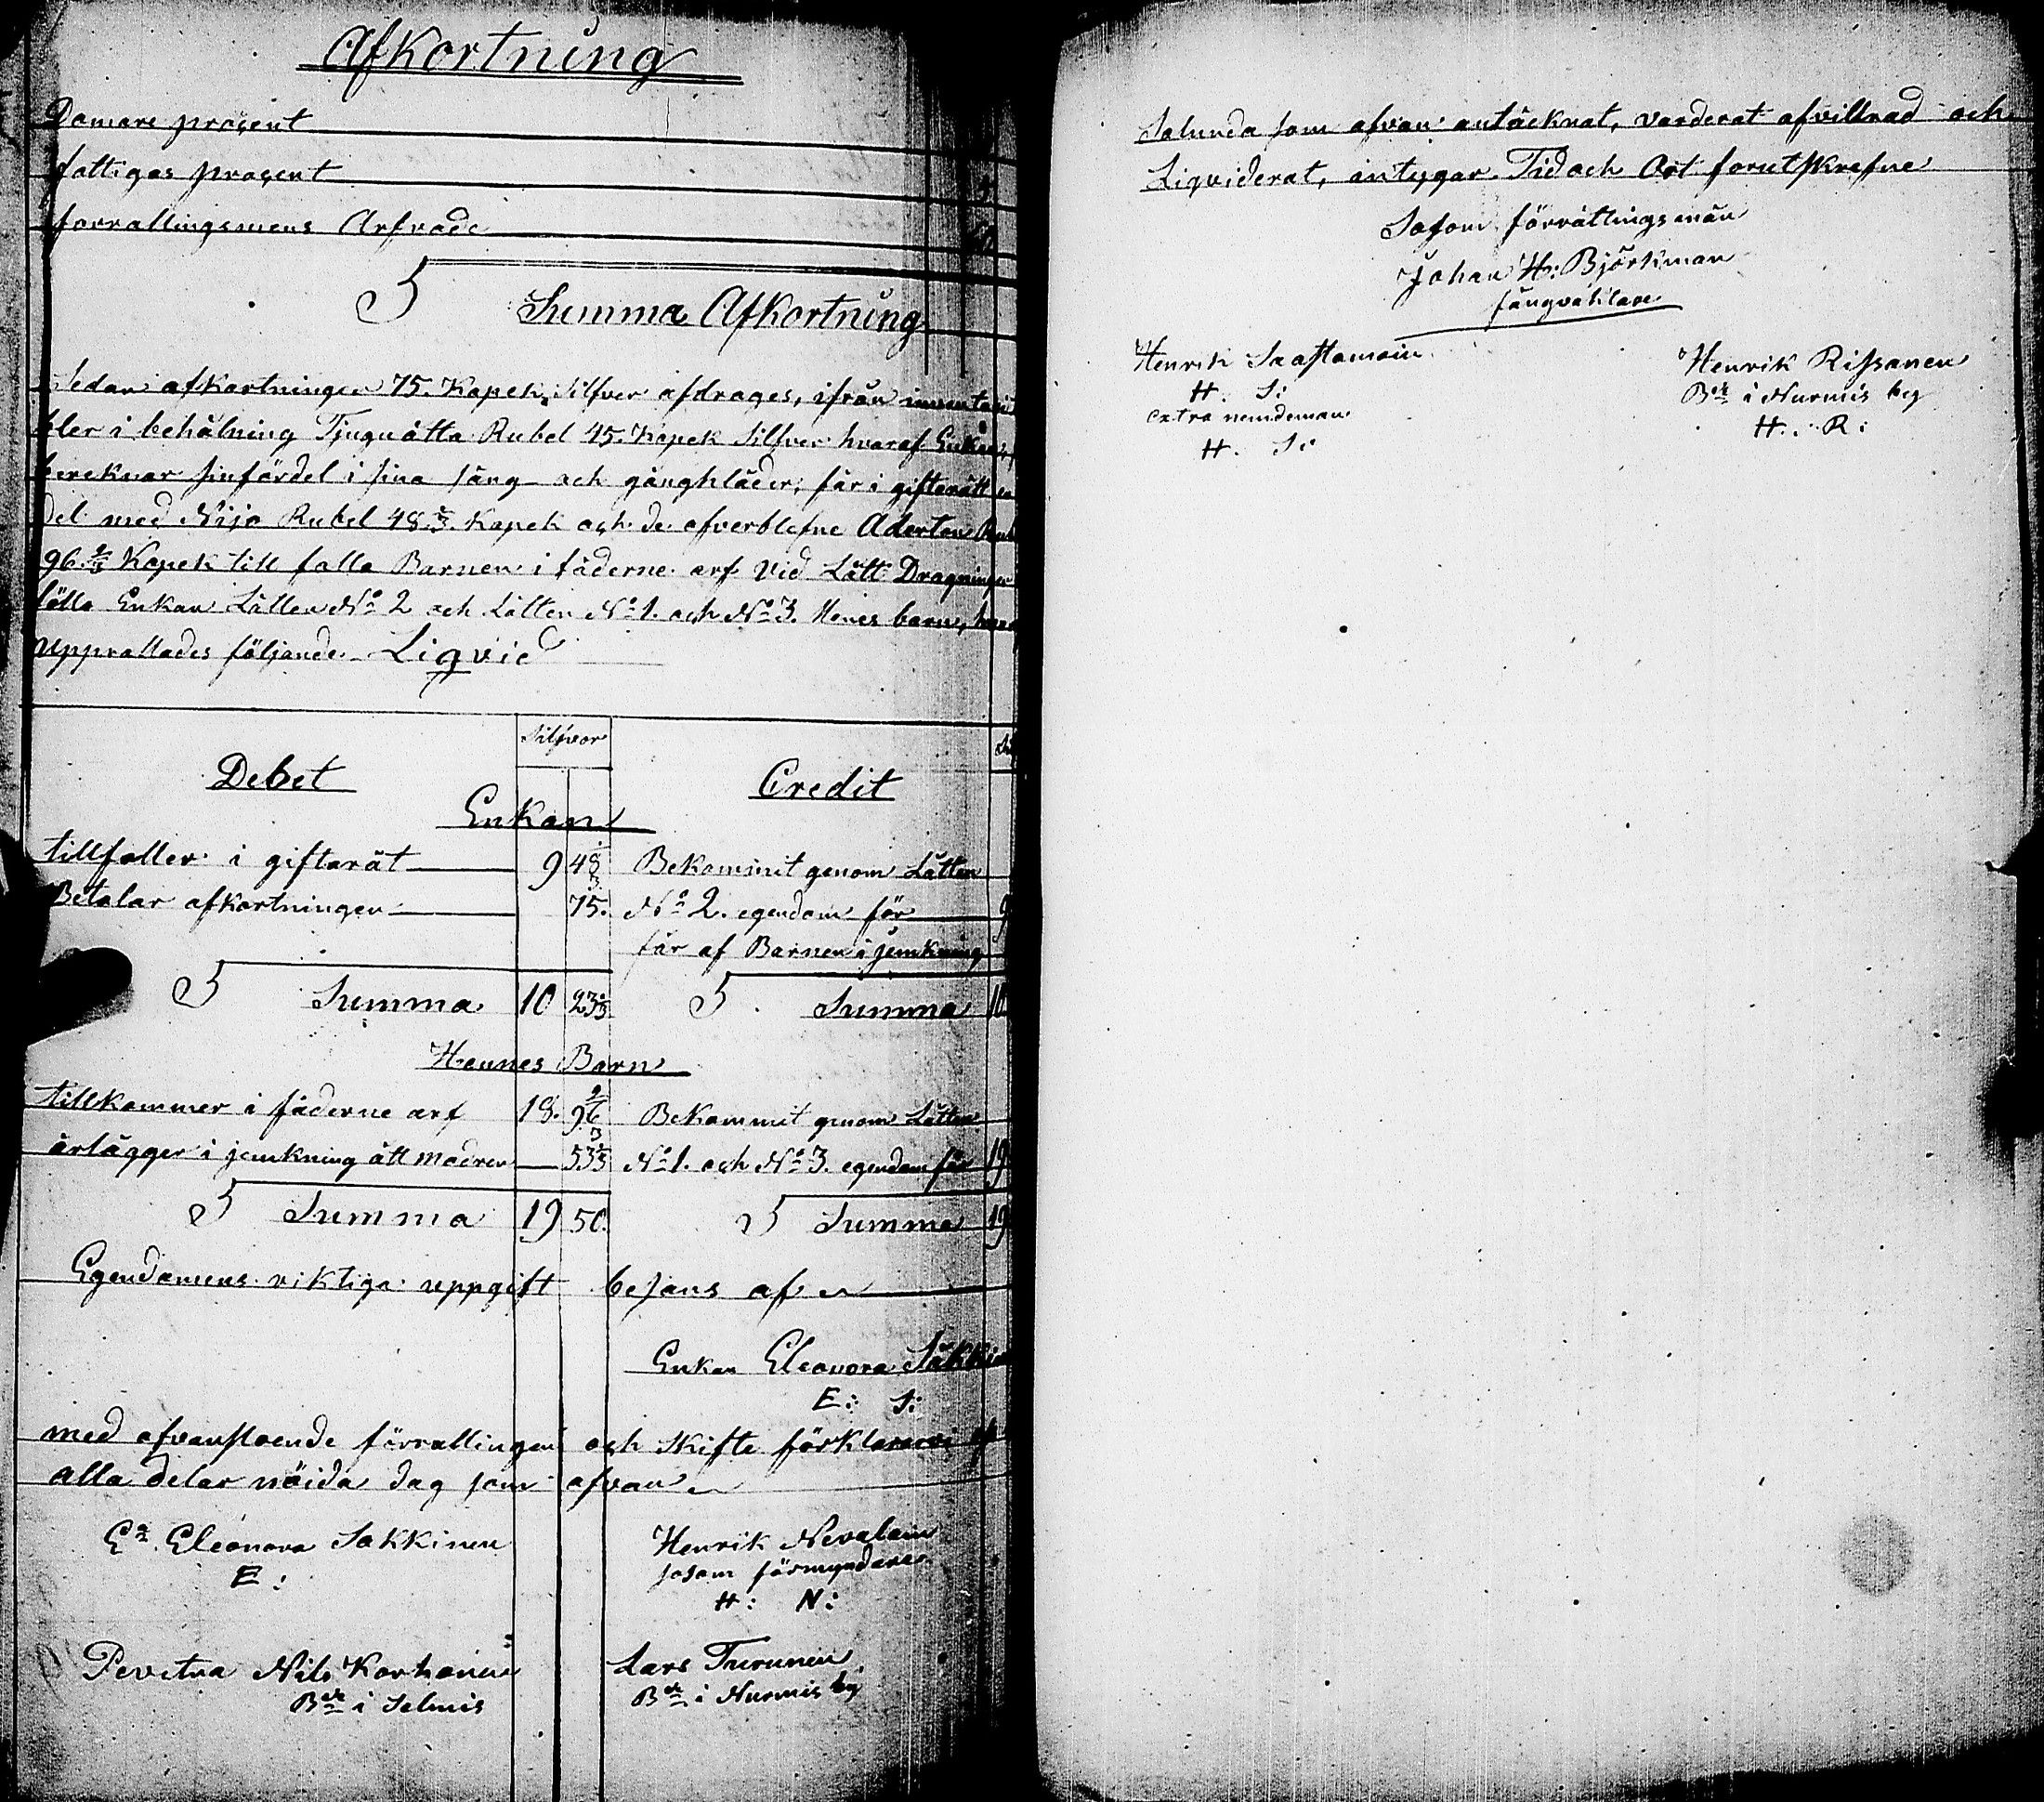 Afkortning
Domare procent
fattigas procent
forrattingsmens Arfvode
S Summa Afkortning
Sedan afkortningen 75. Kopek Silfver afdrages, ifrån
bler i behålning Tjuguåtta Rubel 45. Kopek Silfver hvaraf Enkan,
bereknar sinfördel i sina säng och gångkläder; får i giftorätt
del med Nijo Rubel 48 1/3. Kopek och de ofverblefne Aderton
96 2/3 Kopek till falla Barnen i fäderne arf Vid Lått Dragningen
fölle Enkan Låtten No 2 och Låtten No 1. och No 3. Henes barn,
upprattades följande Liqvid
Silfver
Debet Credit
Enkan
tillfaller i giftorät 9 48 1/3 Bekommit genom Låtten
Betalar afkortningen 75. No 2. egendom för 9
får af Barnen i jemkning
S Summa 10 23 1/3 S Summa 10
Hennes Barn
tillkommer i fäderne arf 18. 96 2/3 Bekommit genom Låtten
ärlägger i jemkning ått modren 53 1/3 No 1. och No 3. egendom för 19
S Summa 19 50. S Summa 19
Egendomens riktiga uppgift bejans af
Enkan Eleonora Säkkin
E: S:
med ofvanstoende förrattingen och skifte förklarar vi
alla delar nöida dag som ofvan
En Eleonora Sakkinen Henrik Nevalain
E: sosom förmyndare
H: N:
Nils Korhonen Lars Turunen
Bde i Selmis Bde i Nurmis by
Salunda som ofvan antäcknat, varderat afvittrad och
Liqviderat, intygar Tid och Ort forutskrefne
Sosom förrättingsmän
Johan H: Björkman
fångvaktare
Henrik Saastamoin Henrik Rissanen
H. S: Bde i Nurmis by
extra nemdeman H. R:
H. S: